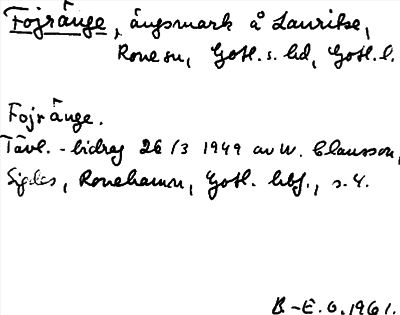 Fojränge, ängsmark å Lauritse,
Rone sn, Gotl. s. hd, Gotl. l.
Fojränge.
Tävl.-bidrag 26/3 1949 av W. Clausson,
Sigdes, Ronehamn, Gotl. hbf., s. 4.
B-E. O. 1961.